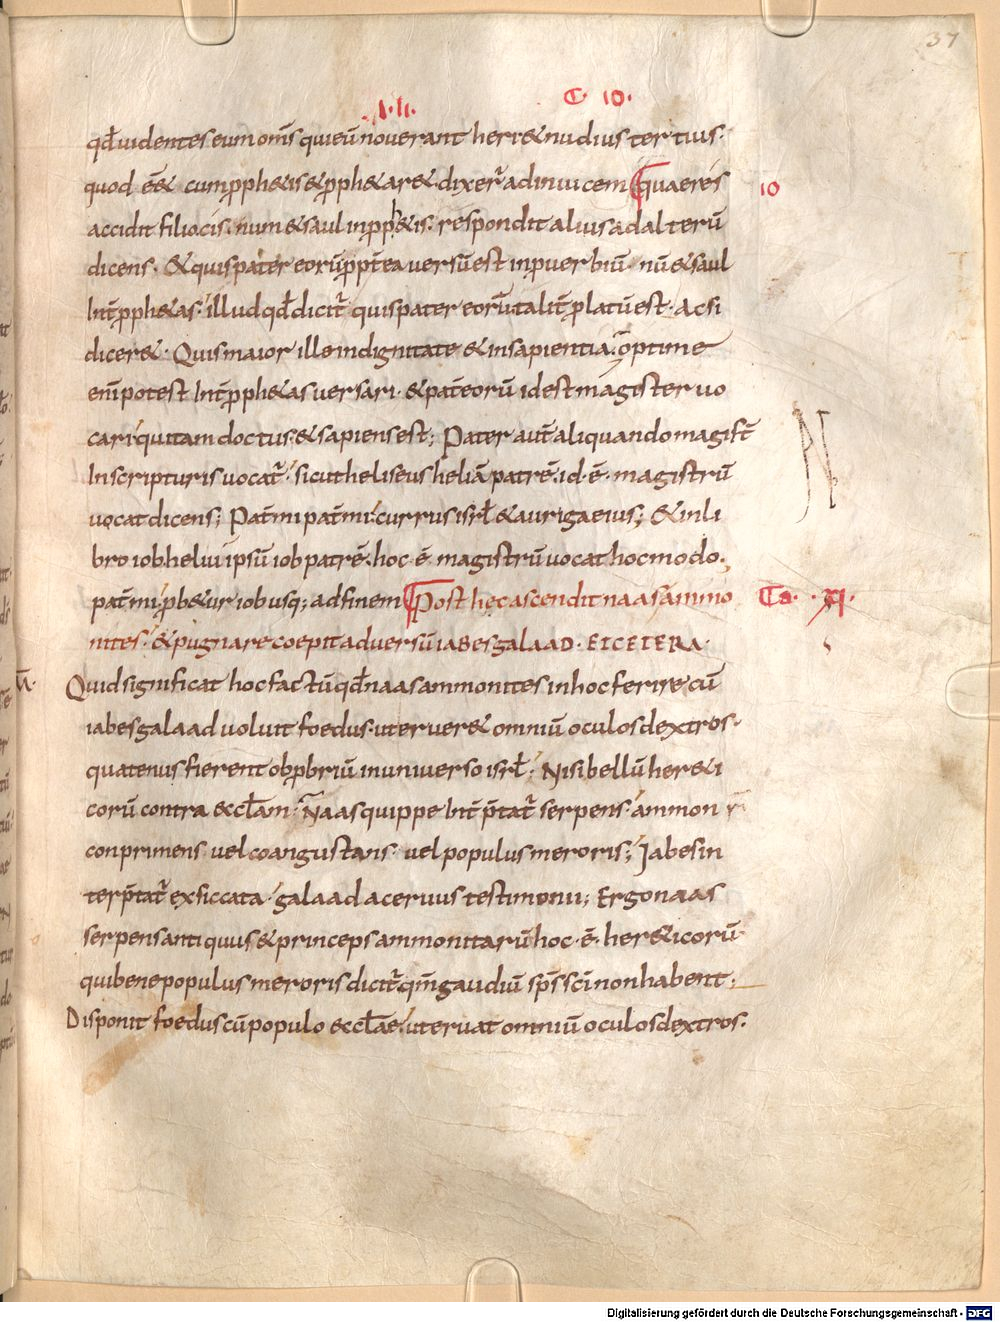 37
l. li. C. 10.
qđ uidentes eum om̄s qui eū noverant heri & nudius tertius.
quod ēẽ cum pph&is & pph&ar&. dixer̄ ad inuicem quae res 10
accidit filio cis. num & saul in pph&is. respondit alius ad alterū
dicens. & quis pater eorū ppt̄ea versū est in puerbiū. nū & saul
Int̄ pph&as. illud qđ dicit̄ quis pater eorū talit̄ platū est. ac si
dicer&. Quis maior illo in dignitate & in sapientia. optime
eni potest Int̄ pph&as versari. & pat̄ eorū id est magister uo
cari qui tam doctus & sapiens est; Pater aut̄ aliquando magist̄
In scripturis uocat̄. sicut heliseus heliā patrē. id. ē. magistrū
uocat dicens; Pat̄ mi pat̄ mi currus isrł & auriga eius; & in li
bro iob. heliu ipsū iob patrē. hoc. ē magistrū vocat hoc modo.
pat̄ mi pb&ur iob usq; ad finem Post hęc ascendit naas ammo Ca. . xi.
nites. & pugnare coepit adversū iabes galaad. ETCETERA.
Quid significat hoc factū qđ naas ammonites in hoc ferire cū
iabes galaad voluit foedus. ut eruer& omniū oculos dextros.
quatenus fierent obpbriū in universo isrł; Nisi bellū her&i
corū contra ecclam. Naas quippe Int̄ptat̄ serpens. ammon
conprimens vel coangustans. vel populus meroris; Jabes in
terptat̄ exsiccata. galaad acervus testimonii; Ergo naas
serpens antiquus & princeps ammonitarū hoc. ē. her&icorū
qui bene populus meroris dicit̄ qm̄ gaudiū sp̄s sci non habent;
Disponit foedus cū populo ecclae ut eruat omniū oculos dextros.
Digitalisierung gefördert durch die Deutsche Forschungsgemeinschaft - DFG